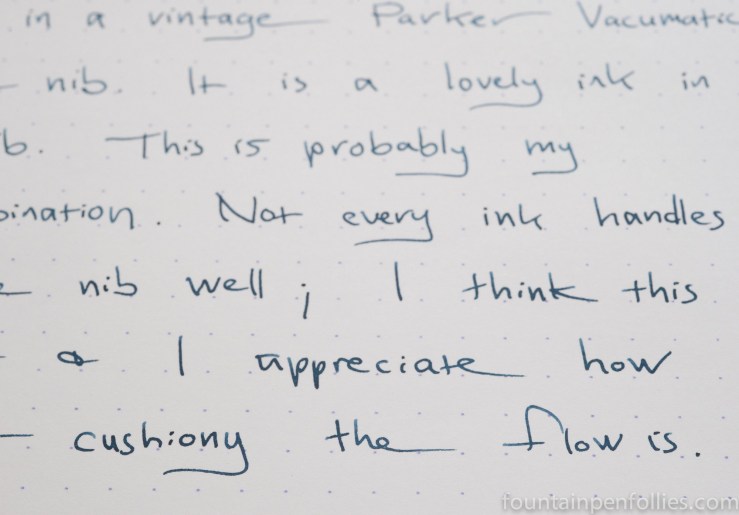 in a vintage Parker Vacumatic
nib. It is a lovely ink in
b. This is probably my
bination. Not every ink handles
nib well; I think this
I appreciate how
cushiony the flow is.
fountainpenfollies.com